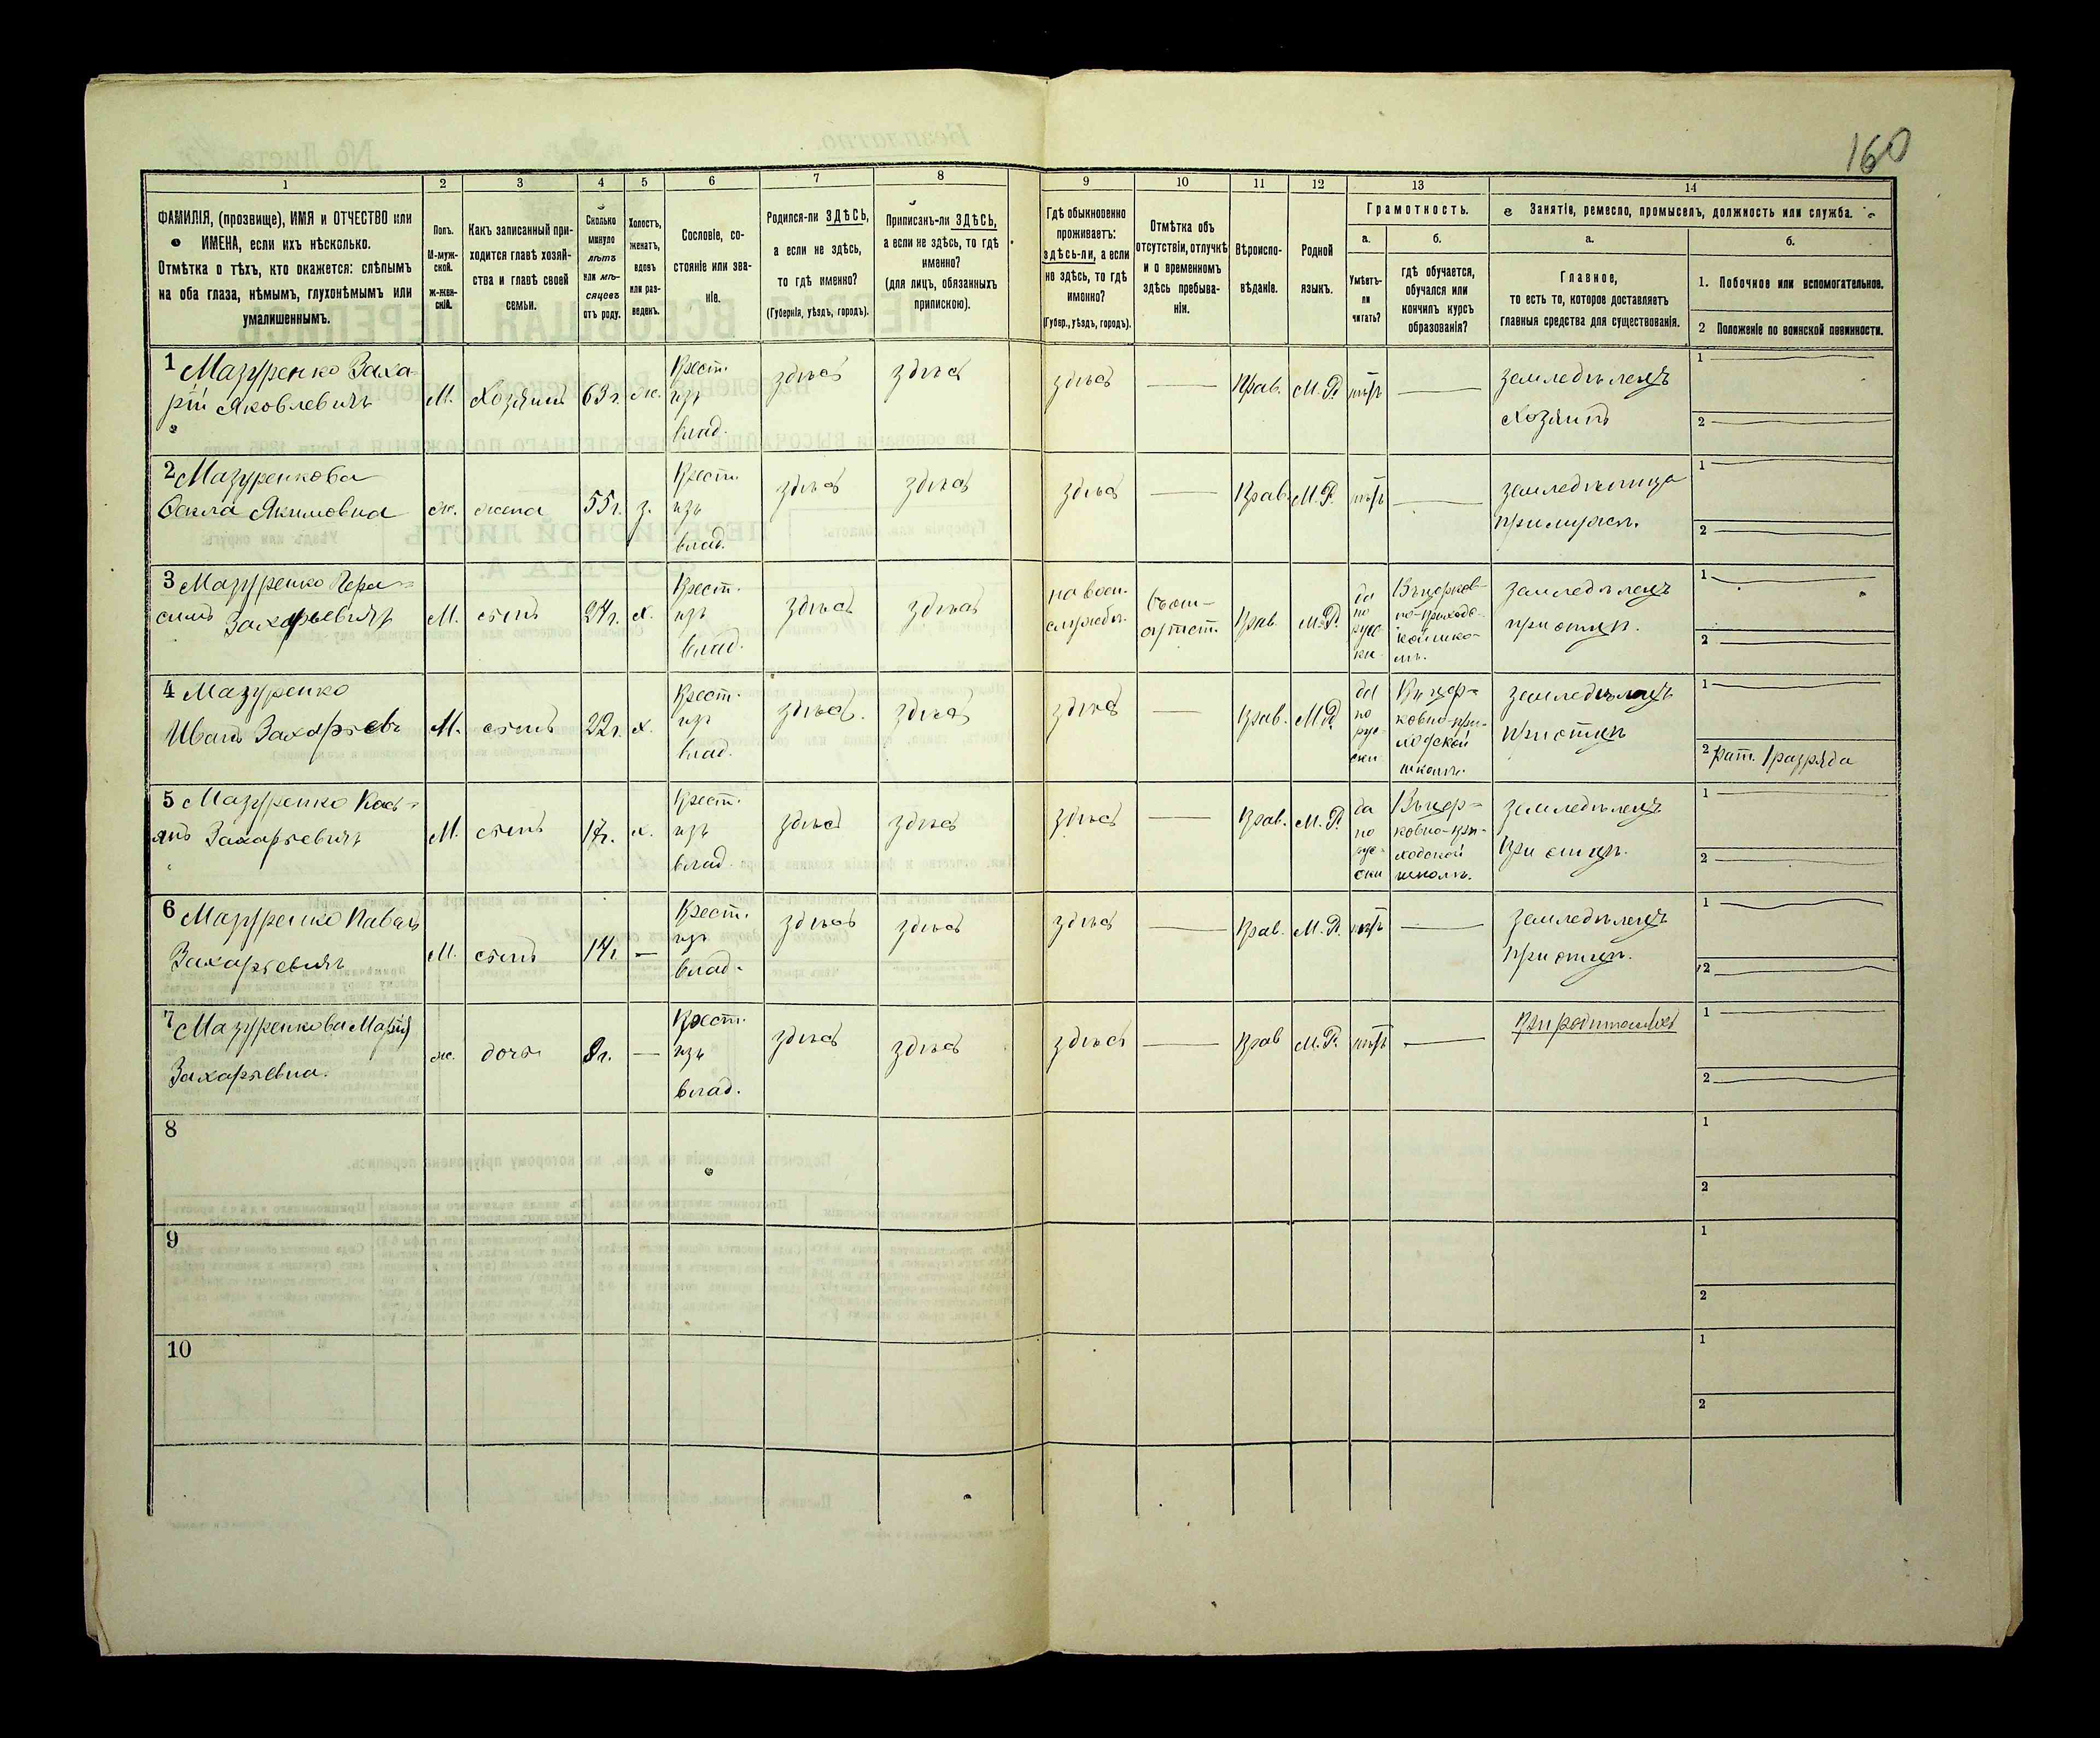 160
1
2
3
4
5
6
7
8
9
10
11
12
13
14
ФАМИЛІЯ, (прозвище), ИМЯ и ОТЧЕСТВО или
ИМЕНА, если ихъ нѣсколько.
Отмѣтка о тѣхъ, кто окажется: слѣпымъ
на оба глаза, нѣмымъ, глухонѣмымъ или
умалишеннымъ.
Полъ.
М-муж-
ской.
Ж-жен-
скій.
Какъ записанный при-
ходится главѣ хозяй-
ства и главѣ своей
семьи.
Сколько
минуло
лѣтъ
или мѣ-
сяцевъ
отъ роду.
Холостъ,
женатъ,
вдовъ
или раз-
веденъ.
Сословіе, со-
стояніе или зва-
ніе.
Родился-ли ЗДѢСЬ,
а если не здѣсь,
то гдѣ именно?
(Губернія, уѣздъ, городъ).
Приписанъ-ли ЗДѢСЬ,
а если не здѣсь, то гдѣ
именно?
(для лицъ, обязанныхъ
припискою).
Гдѣ обыкновенно
проживаетъ:
здѣсь-ли, а если
не здѣсь, то гдѣ
именно?
(Губер., уѣздъ, городъ).
Отмѣтка объ
отсутствіи, отлучкѣ
и о временномъ
здѣсь пребыва-
ніи.
Вѣроиспо-
вѣданіе.
Родной
языкъ.
Грамотность.
а.
Умѣетъ-
ли
читать?
б.
гдѣ обучается,
обучался или
кончилъ курсъ
образованія?
Занятіе, ремесло, промыселъ, должность или служба.
а.
Главное,
то есть то, которое доставляетъ
главныя средства для существованія.
б.
1. Побочное или вспомогательное.
2 Положеніе по воинской повинности.
1 Мазуренко Заха-
рій Яковлевичъ
М.
Хозяинъ
63 г.
ж.
Крест.
изъ
влад.
здѣсь
здѣсь
здѣсь
Прав.
М.Р.
нѣтъ
земледѣлецъ
хозяинъ
1
2
2 Мазуренкова
Якимовна
ж.
жена
55 г.
з.
Крест.
изъ
влад.
здѣсь
здѣсь
здѣсь
Прав.
М.Р.
нѣтъ
при мужѣ.
1
2
3 Мазуренко Гера-
симъ Захарьевичъ
М.
сынъ
24 г.
х.
Крест.
изъ
влад.
здѣсь
здѣсь
на воен.
службѣ.
Прав.
М.Р.
да
по
рус-
ки
Въ церков-
но-приходс-
кой шко-
лѣ.
земледѣлецъ
при отцѣ.
1
2
4 Мазуренко
Иванъ Захарьевъ
М.
сынъ
22 г.
х.
Крест.
изъ
влад.
здѣсь.
здѣсь
здѣсь
Прав.
М.Р.
да
по
рус-
ски
Въ цер-
ковно-при-
ходской
школѣ.
земледѣлецъ
при отцѣ
1
2 рат. I разряда
5 Мазуренко Кась-
янъ Захарьевичъ
М.
сынъ
17 г.
х.
Крест.
изъ
влад.
здѣсь
здѣсь
здѣсь
Прав.
М.Р.
да
по
рус-
ски
Въ цер-
ковно-при-
ходской
школѣ.
земледѣлецъ
при отцѣ.
1
2
6 Мазуренко Павелъ
Захарьевичъ
М.
сынъ
14 г.
Крест.
изъ
влад.
здѣсь
здѣсь
здѣсь
Прав.
М.Р.
нѣтъ
земледѣлецъ
при отцѣ.
1
2
7 Мазуренкова Марія
Захарьевна.
ж.
дочь
8 г.
Крест.
изъ
влад.
здѣсь
здѣсь
здѣсь
Прав
М.Р.
нѣтъ
при родителяхъ
1
2
8
1
2
9
1
2
10
1
2